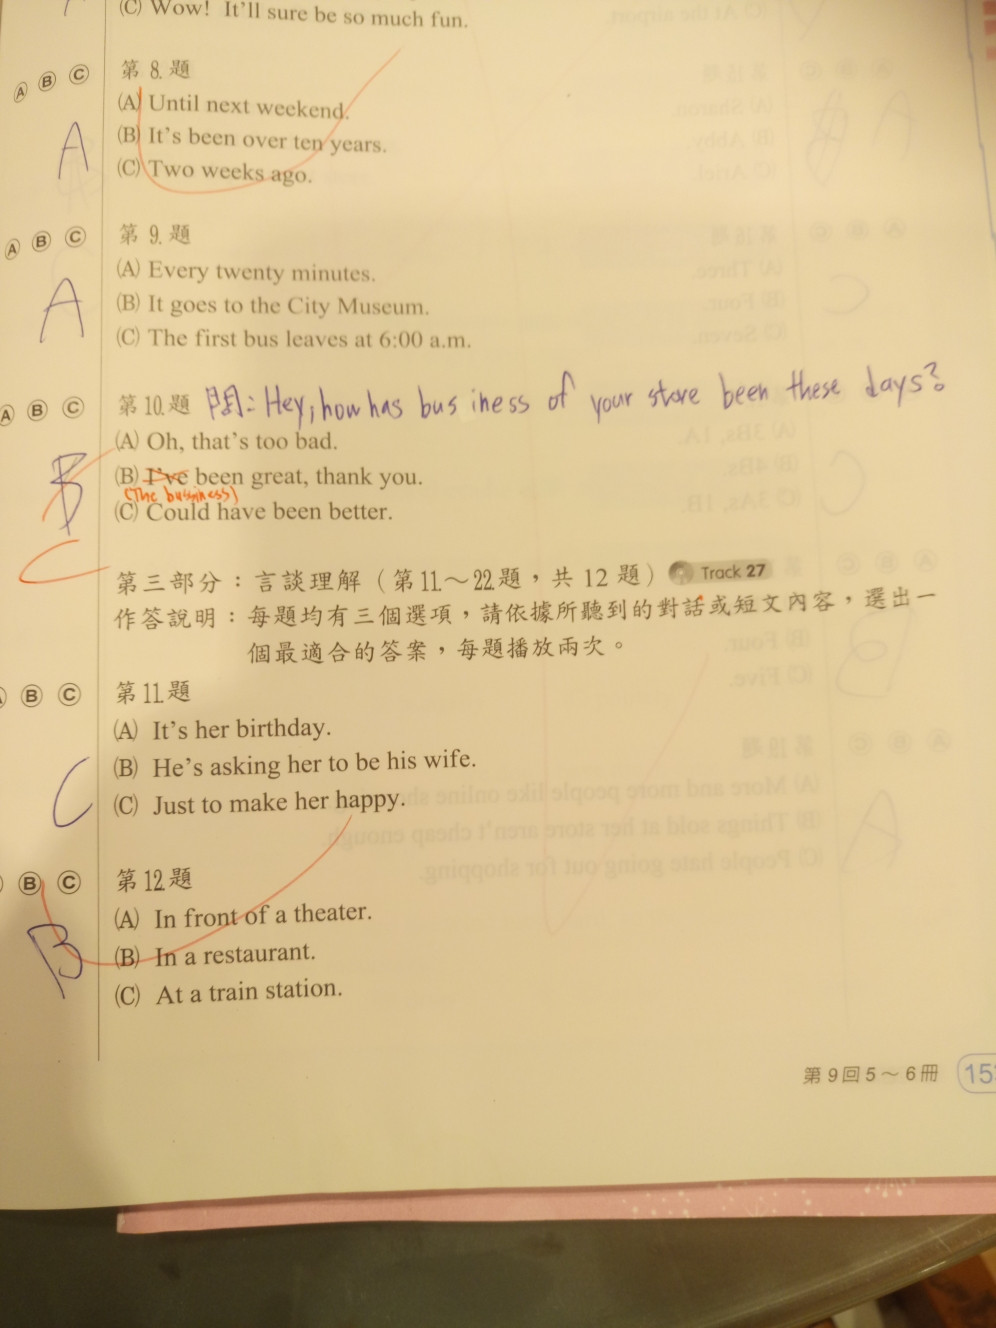 (C) Wow! It'll sure be so much fun.
Ⓐ Ⓑ Ⓒ 第 8. 題
(A) Until next weekend.
A (B) It's been over ten years.
(C) Two weeks ago.
Ⓐ Ⓑ Ⓒ 第 9. 題
(A) Every twenty minutes.
A (B) It goes to the City Museum.
(C) The first bus leaves at 6:00 a.m.
Ⓐ Ⓑ Ⓒ 第 10. 題 問: Hey, how has business of your store been these days?
(A) Oh, that's too bad.
B (B) I've been great, thank you.
(The bussiness)
(C) Could have been better.
C
第三部分：言談理解（第11.～22.題，共 12 題） Track 27
作答說明：每題均有三個選項，請依據所聽到的對話或短文內容，選出一
個最適合的答案，每題播放兩次。
Ⓑ Ⓒ 第 11. 題
(A) It's her birthday.
(B) He's asking her to be his wife.
C (C) Just to make her happy.
Ⓑ Ⓒ 第 12. 題
(A) In front of a theater.
B (B) In a restaurant.
(C) At a train station.
第 9 回 5～6 冊